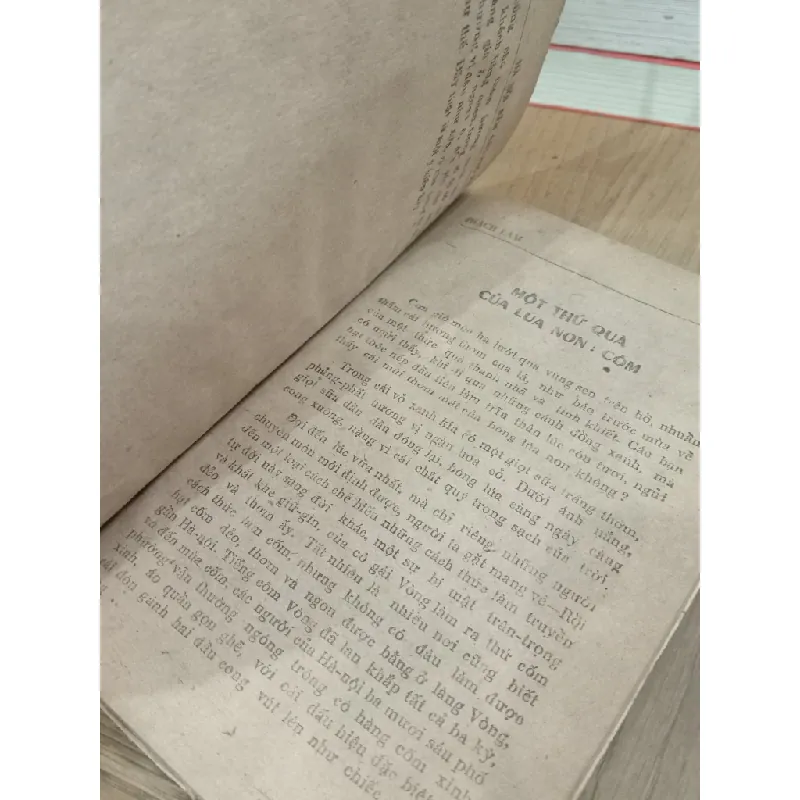 THẠCH LAM
MỘT THỨ QUÀ
CỦA LÚA NON : CỐM
Cơn gió mùa hạ lướt qua vừng sen trên hồ, nhuần
thấm cái hương thơm của lá, như báo trước mùa về
của một thức quà thanh nhã và tinh khiết. Các bạn
có ngửi thấy, khi đi qua những cánh đồng xanh, mà
hạt thóc nếp đầu tiên làm trĩu thân lúc còn tươi, ngửi
thấy cái mùi thơm mát của bông lúa non không?
Trong cái vỏ xanh kia có một giọt sữa trắng thơm,
phảng-phất hương vị ngàn hoa cỏ. Dưới ánh nắng,
giọt sữa dần dần đông lại, bông lúa càng ngày càng
cong xuống, nặng vì cái chất quý trong sạch của trời.
Đợi đến lúc vừa nhất, mà chỉ riêng những người
chuyên môn mới định được, người ta gặt mang về. Rồi
đến một loại cách chế biến những cách thức làm truyền
tự đời này sang đời khác, một sự bí mật trân-trọng
và khắt khe giữ-gìn, của cô gái Vòng làm ra thứ cốm
dẻo và thơm ấy. Tất nhiên là nhiều nơi cũng biết
cách thức làm cốm, nhưng không có đâu làm được
hạt cốm dẻo, thơm và ngon được bằng ở làng Vòng,
gần Hà-nội. Tiếng cốm Vòng đã lan khắp tất cả ba kỳ,
và đến mùa cốm, các người của Hà-nội ba mươi sáu phố
phường vẫn thường ngóng trông cô hàng cốm xinh
xinh, áo quần gọn ghẽ, với cái dấu hiệu đặc biệt
cái đòn gánh hai đầu cong vút lên như chiếc